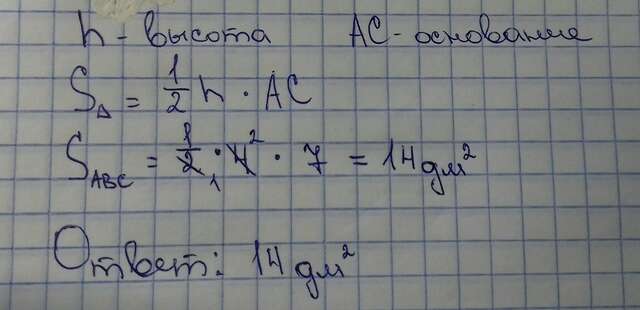 h - высота AC - основание
S△ = 1/2 h · AC
S ABC = 1/2 · 4 · 7 = 14 дм²
Ответ: 14 дм²